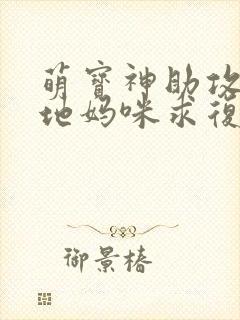 萌寶神助攻
地妈咪求復
御景椿